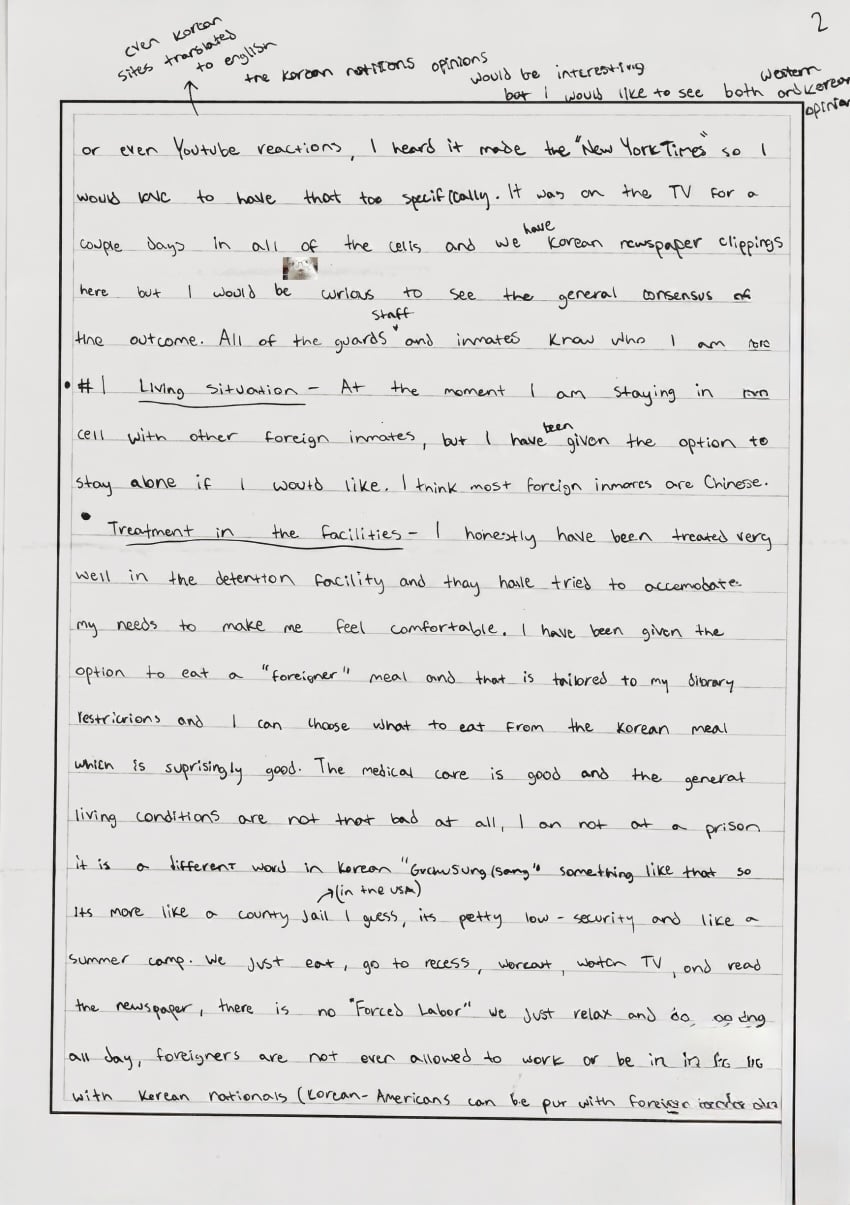 2
even Korean
sites translated
to english
the Korean notitions opinions
would be interesting
but I would like to see both and Korean
western
opinion
or even Youtube reactions, I heard it made the "New York Times" so I
would love to have that too specifically. It was on the TV for a
couple days in all of the cells and we have Korean newspaper clippings
here but I would be curious to see the general consensus of
the outcome. All of the guards staff and inmates know who I am
• #1 Living situation - At the moment I am staying in
cell with other foreign inmates, but I have been given the option to
stay alone if I would like. I think most foreign inmates are Chinese.
• Treatment in the facilities - I honestly have been treated very
well in the detention facility and thay have tried to accomodate
my needs to make me feel comfortable. I have been given the
option to eat a "foreigner" meal and that is tailored to my
restrictions and I can choose what to eat from the Korean meal
which is suprisingly good. The medical care is good and the general
living conditions are not that bad at all, I am not at a prison
it is a different word in Korean something like that so
its more like a county jail (in the USA) I guess, its petty low-security and like a
summer camp. We just eat, go to recess, workout, watch TV, and read
the newspaper, there is no "Forced Labor" we just relax and do
all day, foreigners are not even allowed to work or be in
with Korean nationals (Korean-Americans can be put with foreign